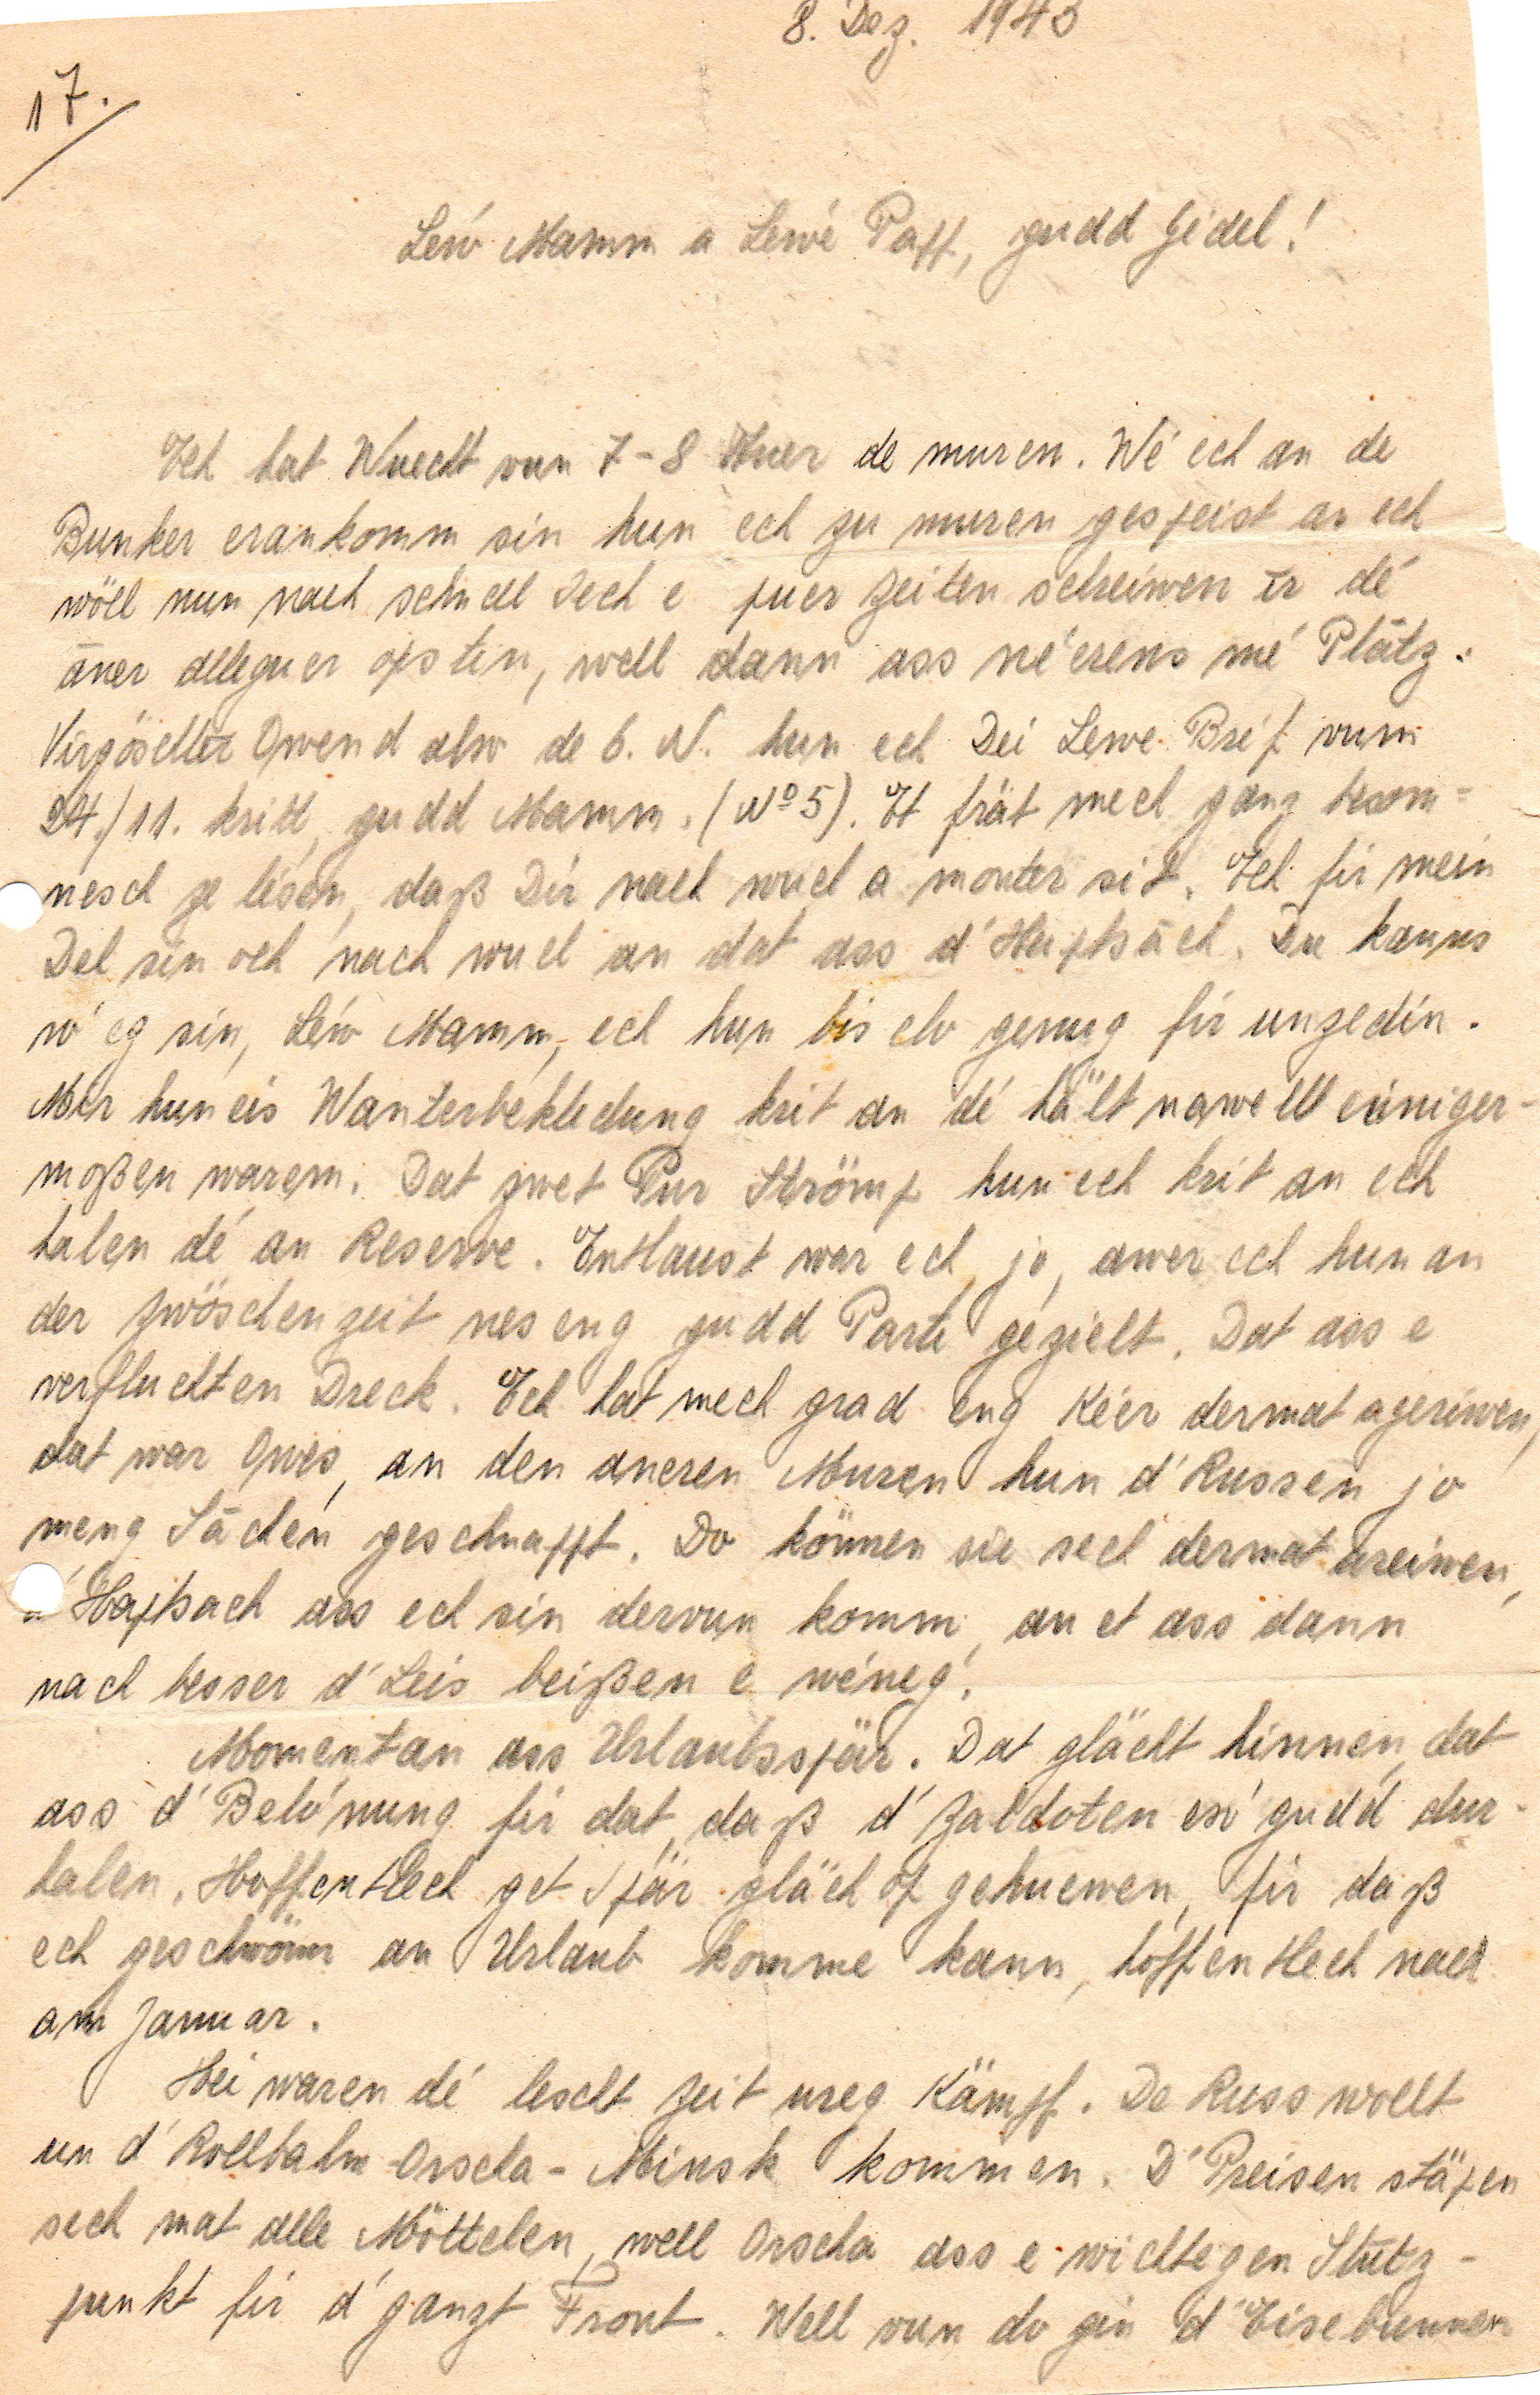 8. Dez. 1943
17.
Léiw Mamm a Léwé Paff, gudd Gidel!
Ech hat Wuecht vun 7-8 Auer de muren. Wé ech an de
Bunker erankomm sin hun ech zu muren gespeist an ech
wöll nun nach schnell Iech e puer Zeilen schreiwen ir dé
äner alleguer opstin, well dann ass néerens mé Plâtz.
Virgöschter Owend also de 6. N. hun ech Déi Lewe Bréf vum
24./11. kritt, gudd Mamm. (No 5). Et frät mech ganz beson=
nesch ze lésen, daß Dir nach wuel a monter sit. Ech fir mein
Del sin och nach wuel an dat ass d'Haptsâch. Du kanns
ró'eg sin, Léiw Mamm, ech hun bis elo genug fir unzedin.
Mir hun eis Wanterbekledung krit an dé hält nawell einiger-
moßen warem. Dat zwet Pur Strömp hun ech krit an ech
halen dé an Reserve. Entlaust war ech, jo, awer ech hun an
der Zwöschenzeit nes eng gudd Parti gezielt. Dat ass e
verfluchten Dreck. Ech hat mech grad eng Kéer dermat ageriwen,
dat war Owes, an den aneren Muren hun d'Russen jo
meng Sâchen geschnappt. Do können sie sech dermat areiwen,
d'Haptsach ass ech sin dervun komm, an et ass dann
nach besser d'Leis beißen e wéneg!
Momentan ass Urlaubsspär. Dat gläicht hinnen, dat
ass d'Beló'nung fir dat, daß d'Zaldoten esó' gudd dur-
halen. Hoffentlech get Spär gläch opgehuewen, fir daß
ech geschwönn an Urlaub komme kann, hoffentlech nach
am Januar.
Hei waren dé lescht Zeit ureg Kämpf. De Russ wollt
un d'Rollbahn Orscha-Minsk kommen. D'Preisen stäpen
sech mat alle Möttelen, well Orscha ass e wichtegen Stütz-
punkt fir d'ganzt Front. Well vun do gin d'Eisebunnen